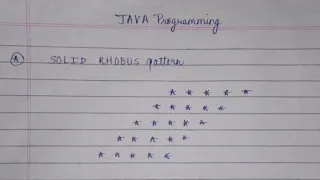 JAVA Programming
* SOLID RHOBUS pattern
* * * * *
* * * * *
* * * * *
* * * * *
* * * * *